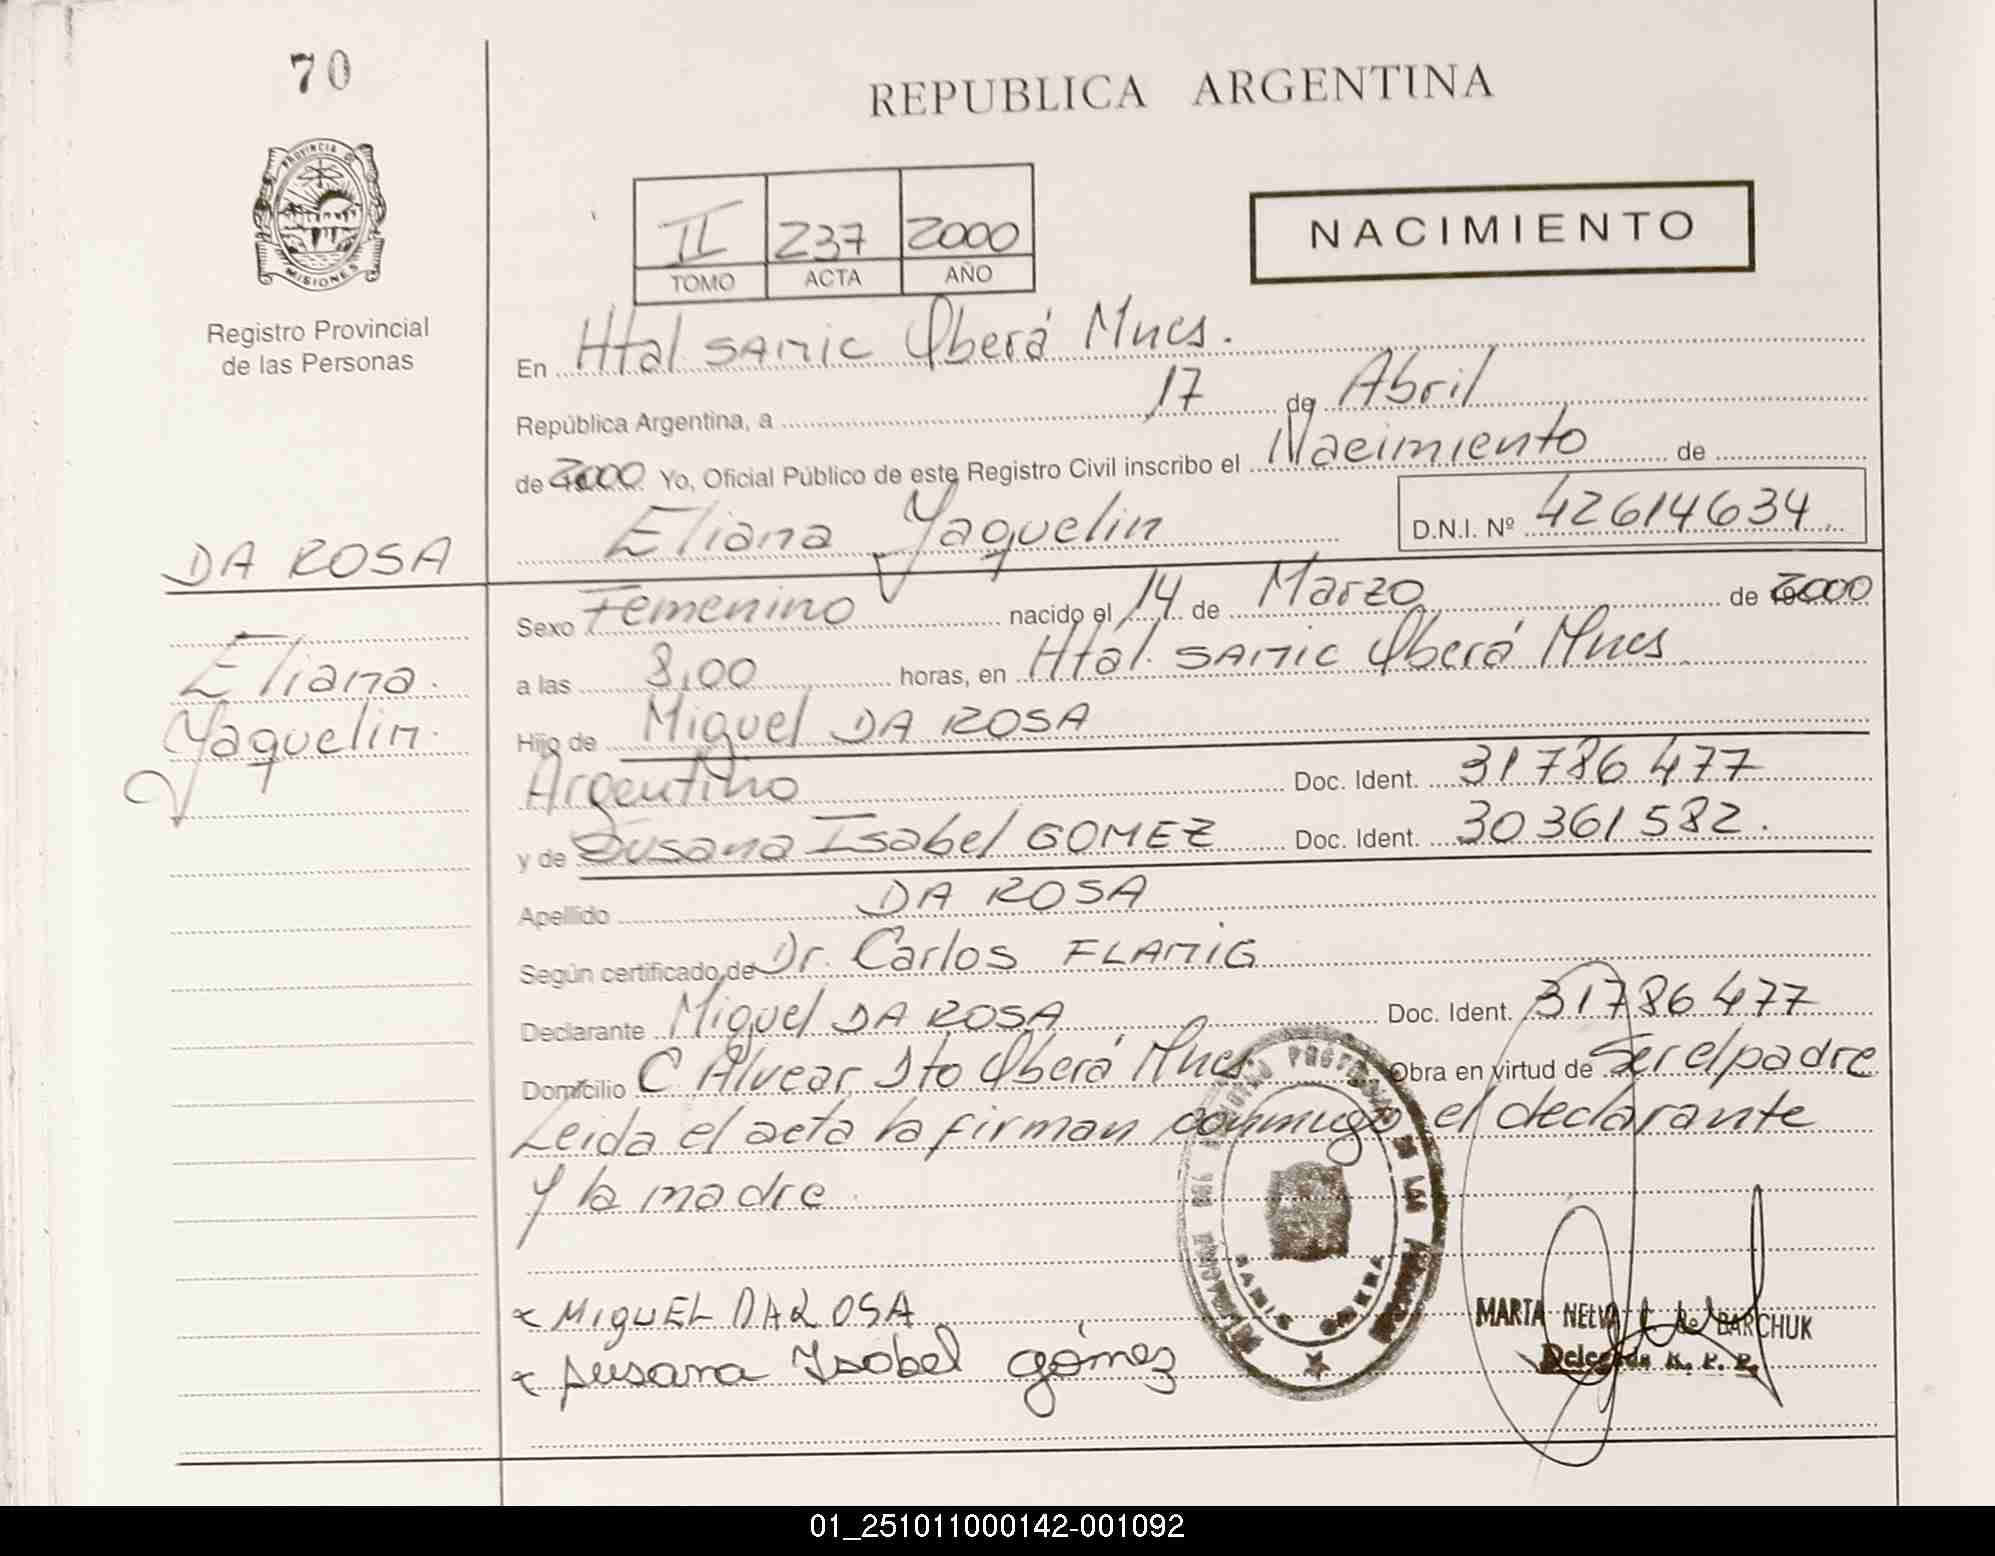 70
REPUBLICA ARGENTINA
PROVINCIA DE
MISIONES
Registro Provincial
de las Personas
II 237 2000
TOMO ACTA AÑO
NACIMIENTO
En Htal SAMIC Oberá Mnes.
República Argentina, a 17 de Abril
de 2000 Yo, Oficial Público de este Registro Civil inscribo el Nacimiento de
Eliana Yaquelin D.N.I. Nº 42614634
DA ROSA
Eliana
Yaquelin
Sexo Femenino nacido el 14 de Marzo de 2000
a las 8,00 horas, en Htal. SAMIC Oberá Mnes
Hijo de Miguel DA ROSA
Argentino Doc. Ident. 31786477
y de Susana Isabel GOMEZ Doc. Ident. 30361582.
Apellido DA ROSA
Según certificado de Dr. Carlos FLAMIG
Declarante Miguel DA ROSA Doc. Ident. 31786477
Domicilio C. Alvear Sto Oberá Mnes Obra en virtud de Ser el padre
Leida el acta la firman conmigo el declarante
y la madre
x MIGUEL DA ROSA
x Susana Isabel gómez
SAMIC OBERA
MARTA NELVA de BARCHUK
Delegada R. P. P.
01_251011000142-001092